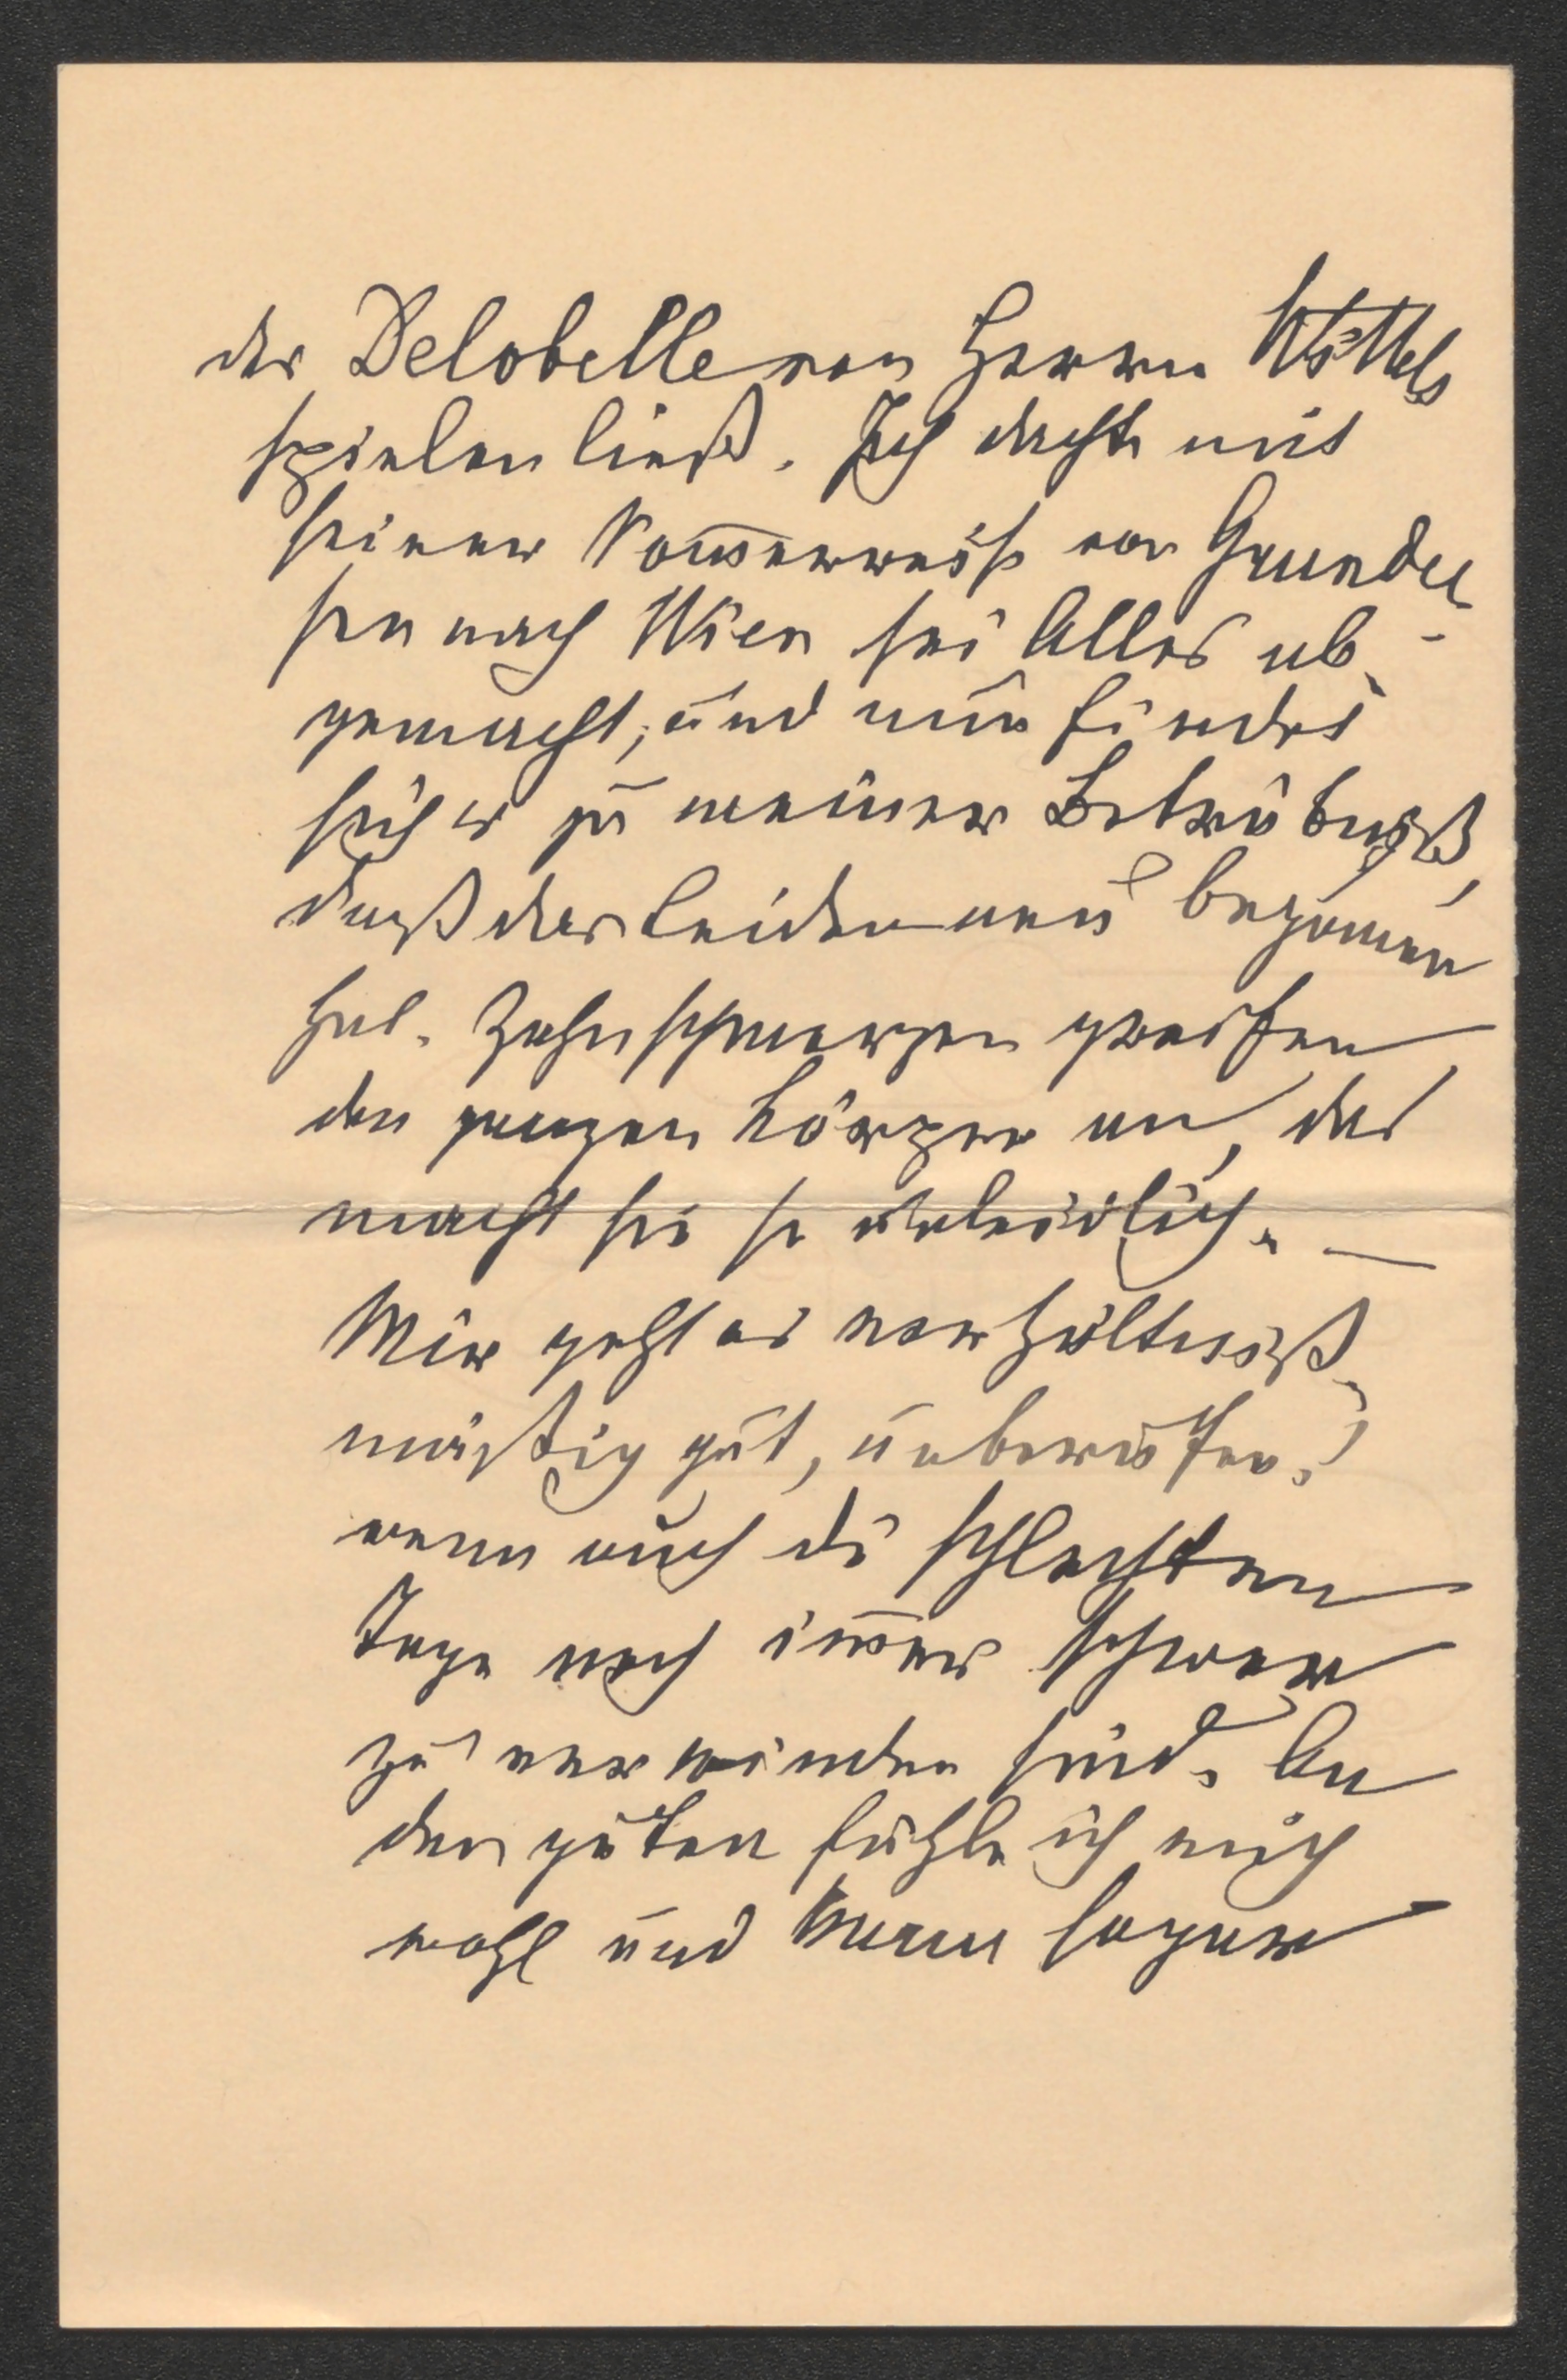 der Delobelle von Herrn Wittels
spielen ließ. Ich dachte mit
seiner Sommerreise von Grundl
see nach Wien sei Alles ab-
gemacht, und nun findet
sich's zu meiner Betrübniß,
daß das Leiden neu begonnen
hat. Zahnschmerzen greifen
den ganzen Körper an, das
macht sie so unleidlich. —
Mir geht es verhältniß-
mäßig gut, unberufen!
wenn auch die schlechten
Tage noch immer schwer
zu verwinden sind. An
den guten fühle ich mich
wohl und kann sogar